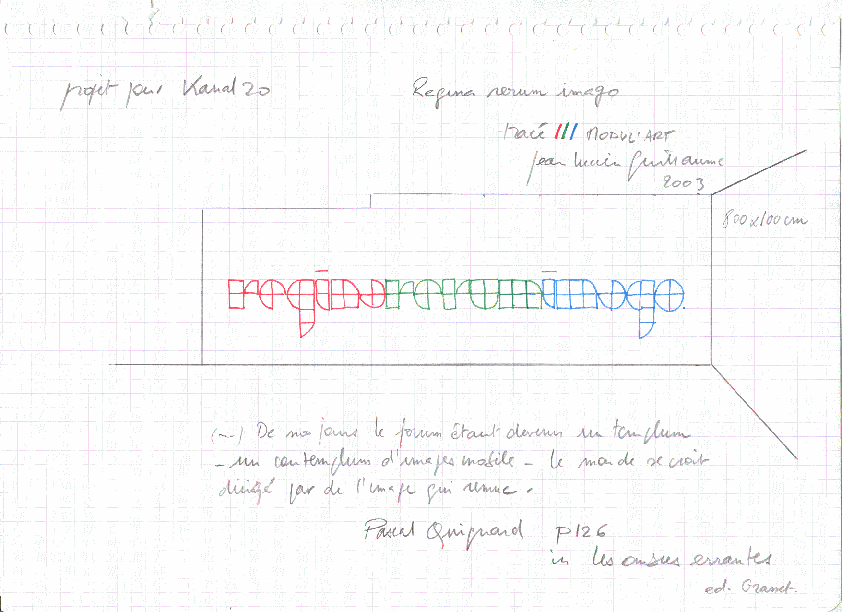 projet pour Kanal 20
Regina rerum imago
tracé /// MODUL'ART
jean lucien guillaume
2003
800x100cm
regina rerum imago
(...) De nos jours le forum étant devenu un templum
- un contemplum d'images mobile - le monde se croit
dirigé par de l'image qui remue.
Pascal Quignard p126
in les ombres errantes
ed. Grasset.